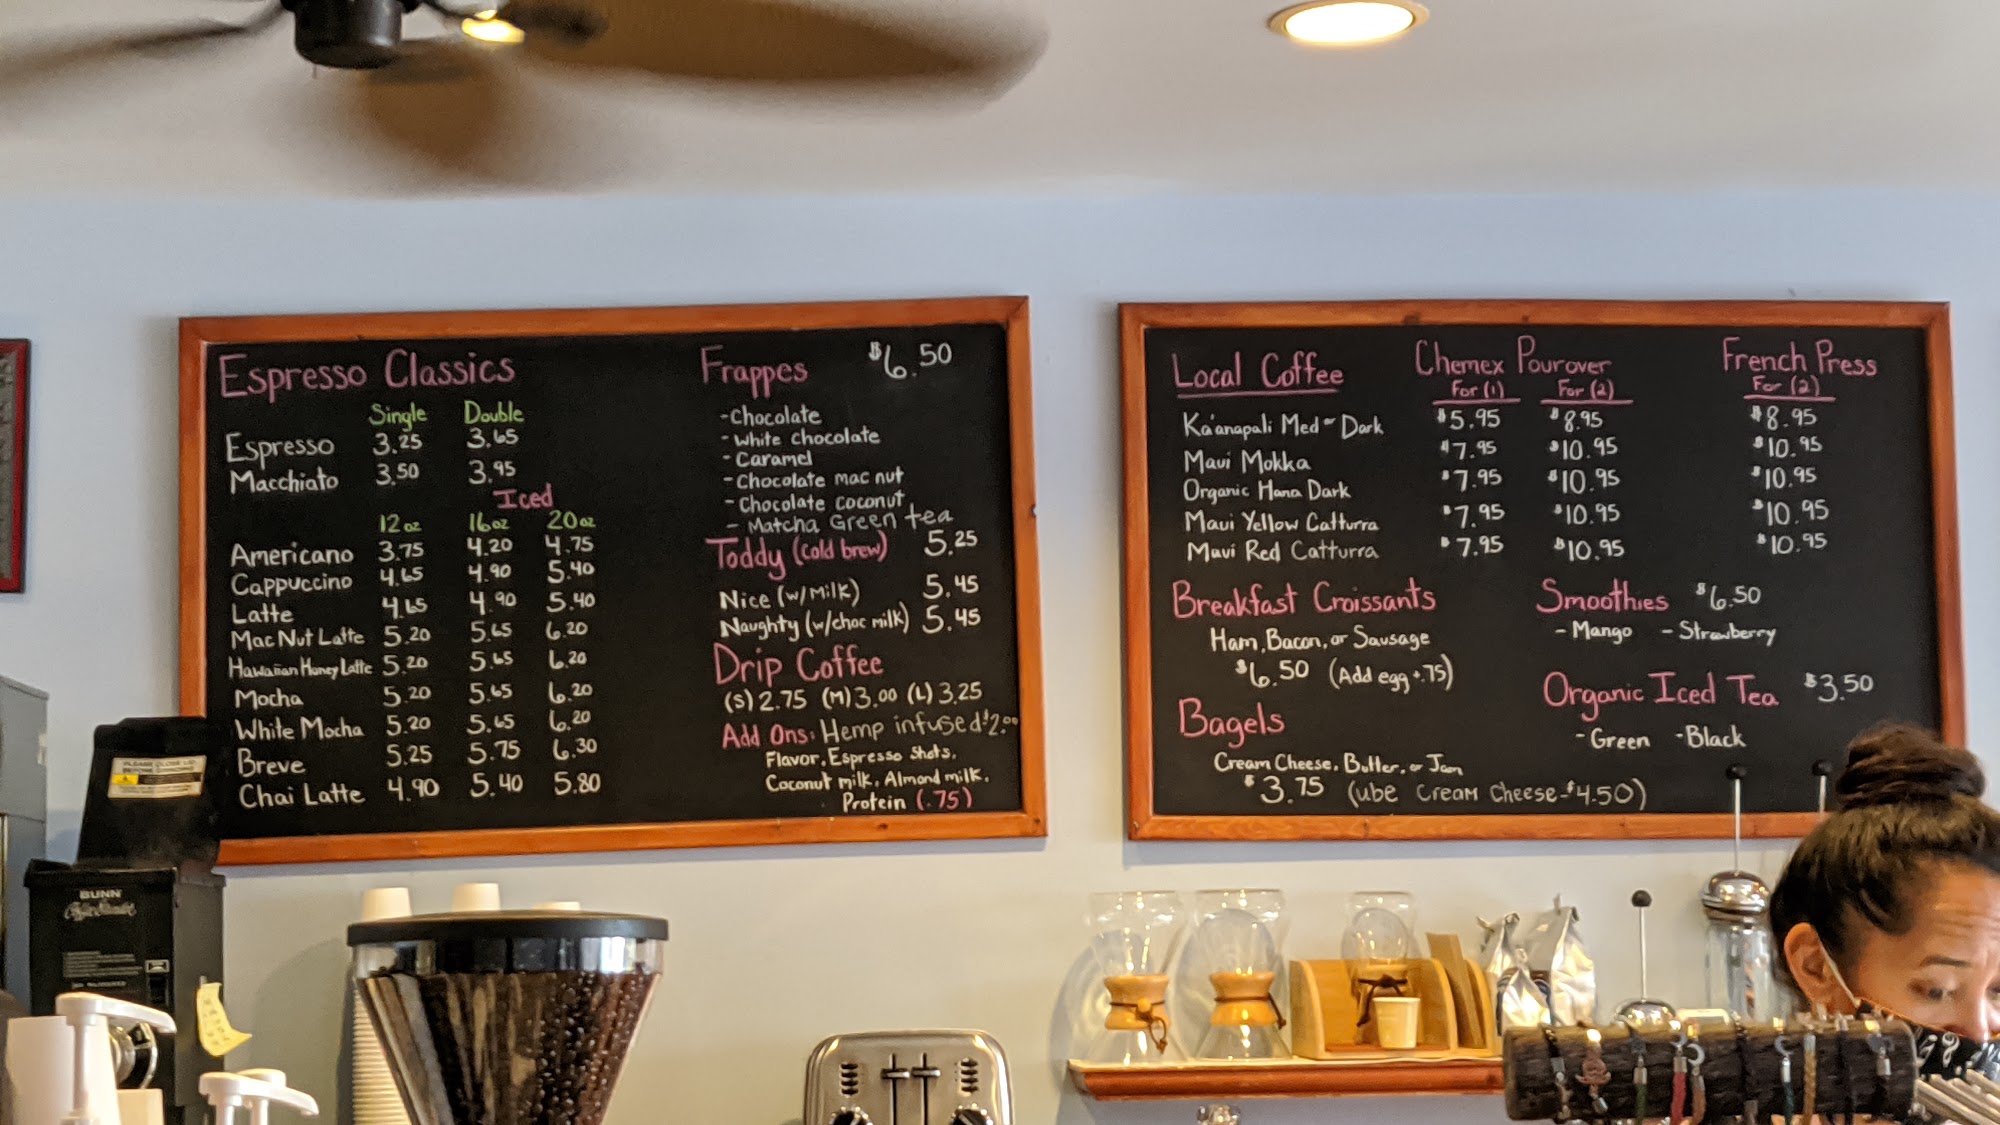 Espresso Classics
Single Double
Espresso 3.25 3.65
Macchiato 3.50 3.95
Iced
12oz 16oz 20oz
Americano 3.75 4.20 4.75
Cappuccino 4.65 4.90 5.40
Latte 4.65 4.90 5.40
Mac Nut Latte 5.20 5.65 6.20
Hawaiian Honey Latte 5.20 5.65 6.20
Mocha 5.20 5.65 6.20
White Mocha 5.20 5.65 6.20
Breve 5.25 5.75 6.30
Chai Latte 4.90 5.40 5.80
Frappes $6.50
-Chocolate
-White chocolate
-Caramel
-Chocolate mac nut
-Chocolate coconut
-Matcha Green tea
Toddy (cold brew) 5.25
Nice (w/Milk) 5.45
Naughty (w/choc milk) 5.45
Drip Coffee
(S) 2.75 (M) 3.00 (L) 3.25
Add Ons: Hemp infused $2.00
Flavor, Espresso Shots,
Coconut milk, Almond milk,
Protein (.75)
Local Coffee Chemex Pourover French Press
For (1) For (2) For (2)
Ka'anapali Med or Dark $5.95 $8.95 $8.95
Maui Mokka $7.95 $10.95 $10.95
Organic Hana Dark $7.95 $10.95 $10.95
Maui Yellow Catturra $7.95 $10.95 $10.95
Maui Red Catturra $7.95 $10.95 $10.95
Breakfast Croissants
Ham, Bacon, or Sausage
$6.50 (Add egg +.75)
Bagels
Cream Cheese, Butter, or Jam
$3.75 (ube cream cheese-$4.50)
Smoothies $6.50
-Mango -Strawberry
Organic Iced Tea $3.50
-Green -Black
PLEASE CLOSE LID
BUNN